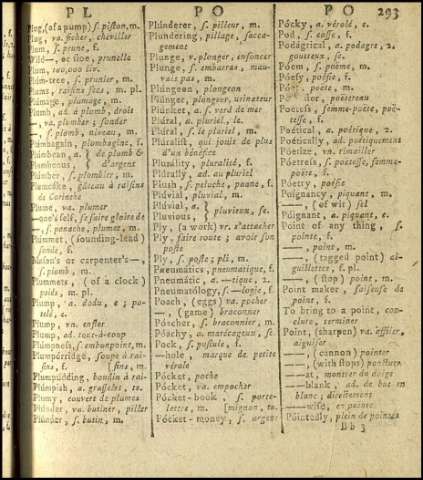 PL
PO
PO
293
Plug, (of a pump) s. piston, m.
Plug, va. ficher, cheviller
Plum, s. prune, f.
—, or sloe, prunelle
Plum, 100,000 liv.
Plum-tree, s. prunier, m.
Plums, raisins secs, m. pl.
Plumage, plumage, m.
Plumb, ad. à plomb, droit
—, va. plomber; sonder
—, s. plomb, niveau, m.
Plumbagin, plombagine, f.
Plumbean, a. } de plomb &
Plumbeous } d'argent
Plumber, s. plombier, m.
Plumcake, gâteau à raisins
de Corinthe
Plume, va. plumer
—one's self, se faire gloire de
—, s. panache, plumet, m.
Plummet, (sounding-lead)
sonde, f.
Mason's or carpenter's—,
s. plomb, m.
Plummets, (of a clock)
poids, m. pl.
Plump, a. dodu, e; potelé, e.
Plump, vn. enfler
Plump, ad. tout-à-coup
Plumpness, s. embonpoint, m.
Plumporridge, soupe à raisins, f. [sins, m.
Plumpudding, boudin à rai-
Plumpish, a. grasset,
Plumy, couvert de plumes
Plunder, va. butiner, piller
Plunder, s. butin, m.
Plunderer, s. pilleur, m.
Plundering, pillage, saccagement
Plunge, v. plonger, enfoncer
Plunge, s. embarras, mauvais pas, m.
Plungeon, plongeon
Plunger, plongeur, urinateur
Plunket, a. s. verd de mer
Plural, a. pluriel, le.
Plural, s. le pluriel, m.
Pluralist, qui jouit de plus
d'un bénéfice
Plurality, pluralité, f.
Plurally, ad. au pluriel
Plush, s. peluche, panne, f.
Pluvial, pluvial, m.
Pluvial, a. } pluvieux, se.
Pluvious, }
Ply, (a work) vr. s'attacher
Ply, faire route; avoir son
poste
Ply, s. poste; pli, m.
Pneumatics, pneumatique, f.
Pneumatic, a. —tique, 2.
Pneumatology, s. —logie, f.
Poach, (eggs) va. pocher
—, (game) braconner
Poacher, s. braconnier, m.
Poachy, a. marécageux, se.
Pock, s. pustule, f.
—hole, marque de petite
vérole
Pocket, poche
Pocket, va. empocher
Pocket-book, s. portelettre, m. [mignon, m.
Pocket-money, s. argent
Pocky, a. vérolé, e.
Pod, s. cosse, f.
Podagrical, a. podagre, 2.
goutteux, se.
Poem, s. poëme, m.
Poesy, poësie, f.
Poet, poëte, m.
poëtereau
Poetess, femme-poëte, poëtesse, f.
Poetical, a. poëtique, 2.
Poetically, ad. poëtiquement
Poetize, vn. rimailler
Poetress, s. poëtesse, femme-
poëte, f.
Poetry, poësie
Poignancy, piquant, m.
—, (of wit) sel
Poignant, a. piquant, e.
Point of any thing, s.
pointe, f.
—, point, m.
—, (tagged point) aiguillettes, f. pl.
—, (stop) point, m.
Point maker, faiseuse de
point, f.
To bring to a point, conclure, terminer
Point, (sharpen) va. effiler,
aiguiser
—, (cannon) pointer
—, (with stops) ponctuer
—at, montrer du doigt
—blank, ad. de but en
blanc, directement
—wise, en pointe
Pointedly, plein de pointes
Bb 3